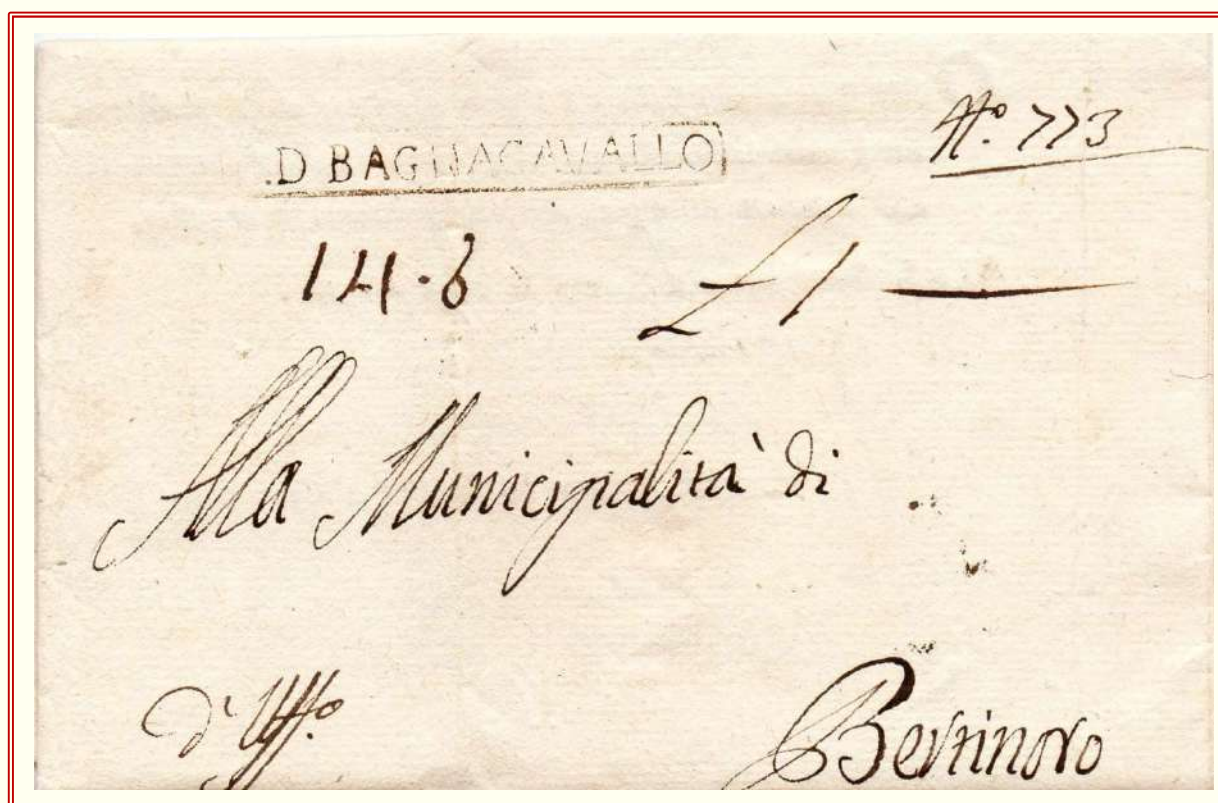 N.º 773
.D BAGNACAVALLO
14.6 £ 1
Alla Municipalità di
d'Uff.º
Bertinoro